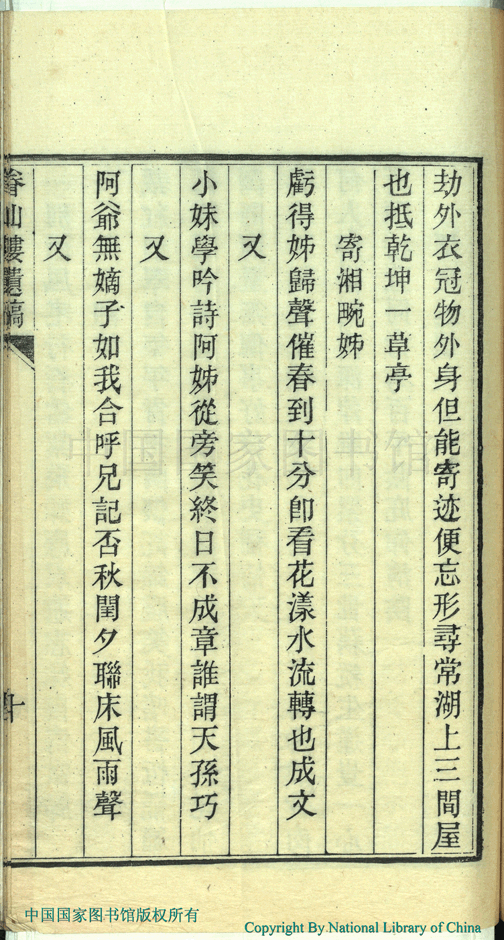 劫外衣冠物外身但能寄迹便忘形尋常湖上三間屋
也抵乾坤一草亭
寄湘畹姊
虧得姊歸聲催春到十分卽看花漾水流轉也成文
又
小妹學吟詩阿姊從旁笑終日不成章誰謂天孫巧
又
阿爺無嫡子如我合呼兄記否秋閨夕聯床風雨聲
又
山樓遺稿
十
中国国家图书馆
中国国家图书馆版权所有
Copyright By National Library of China